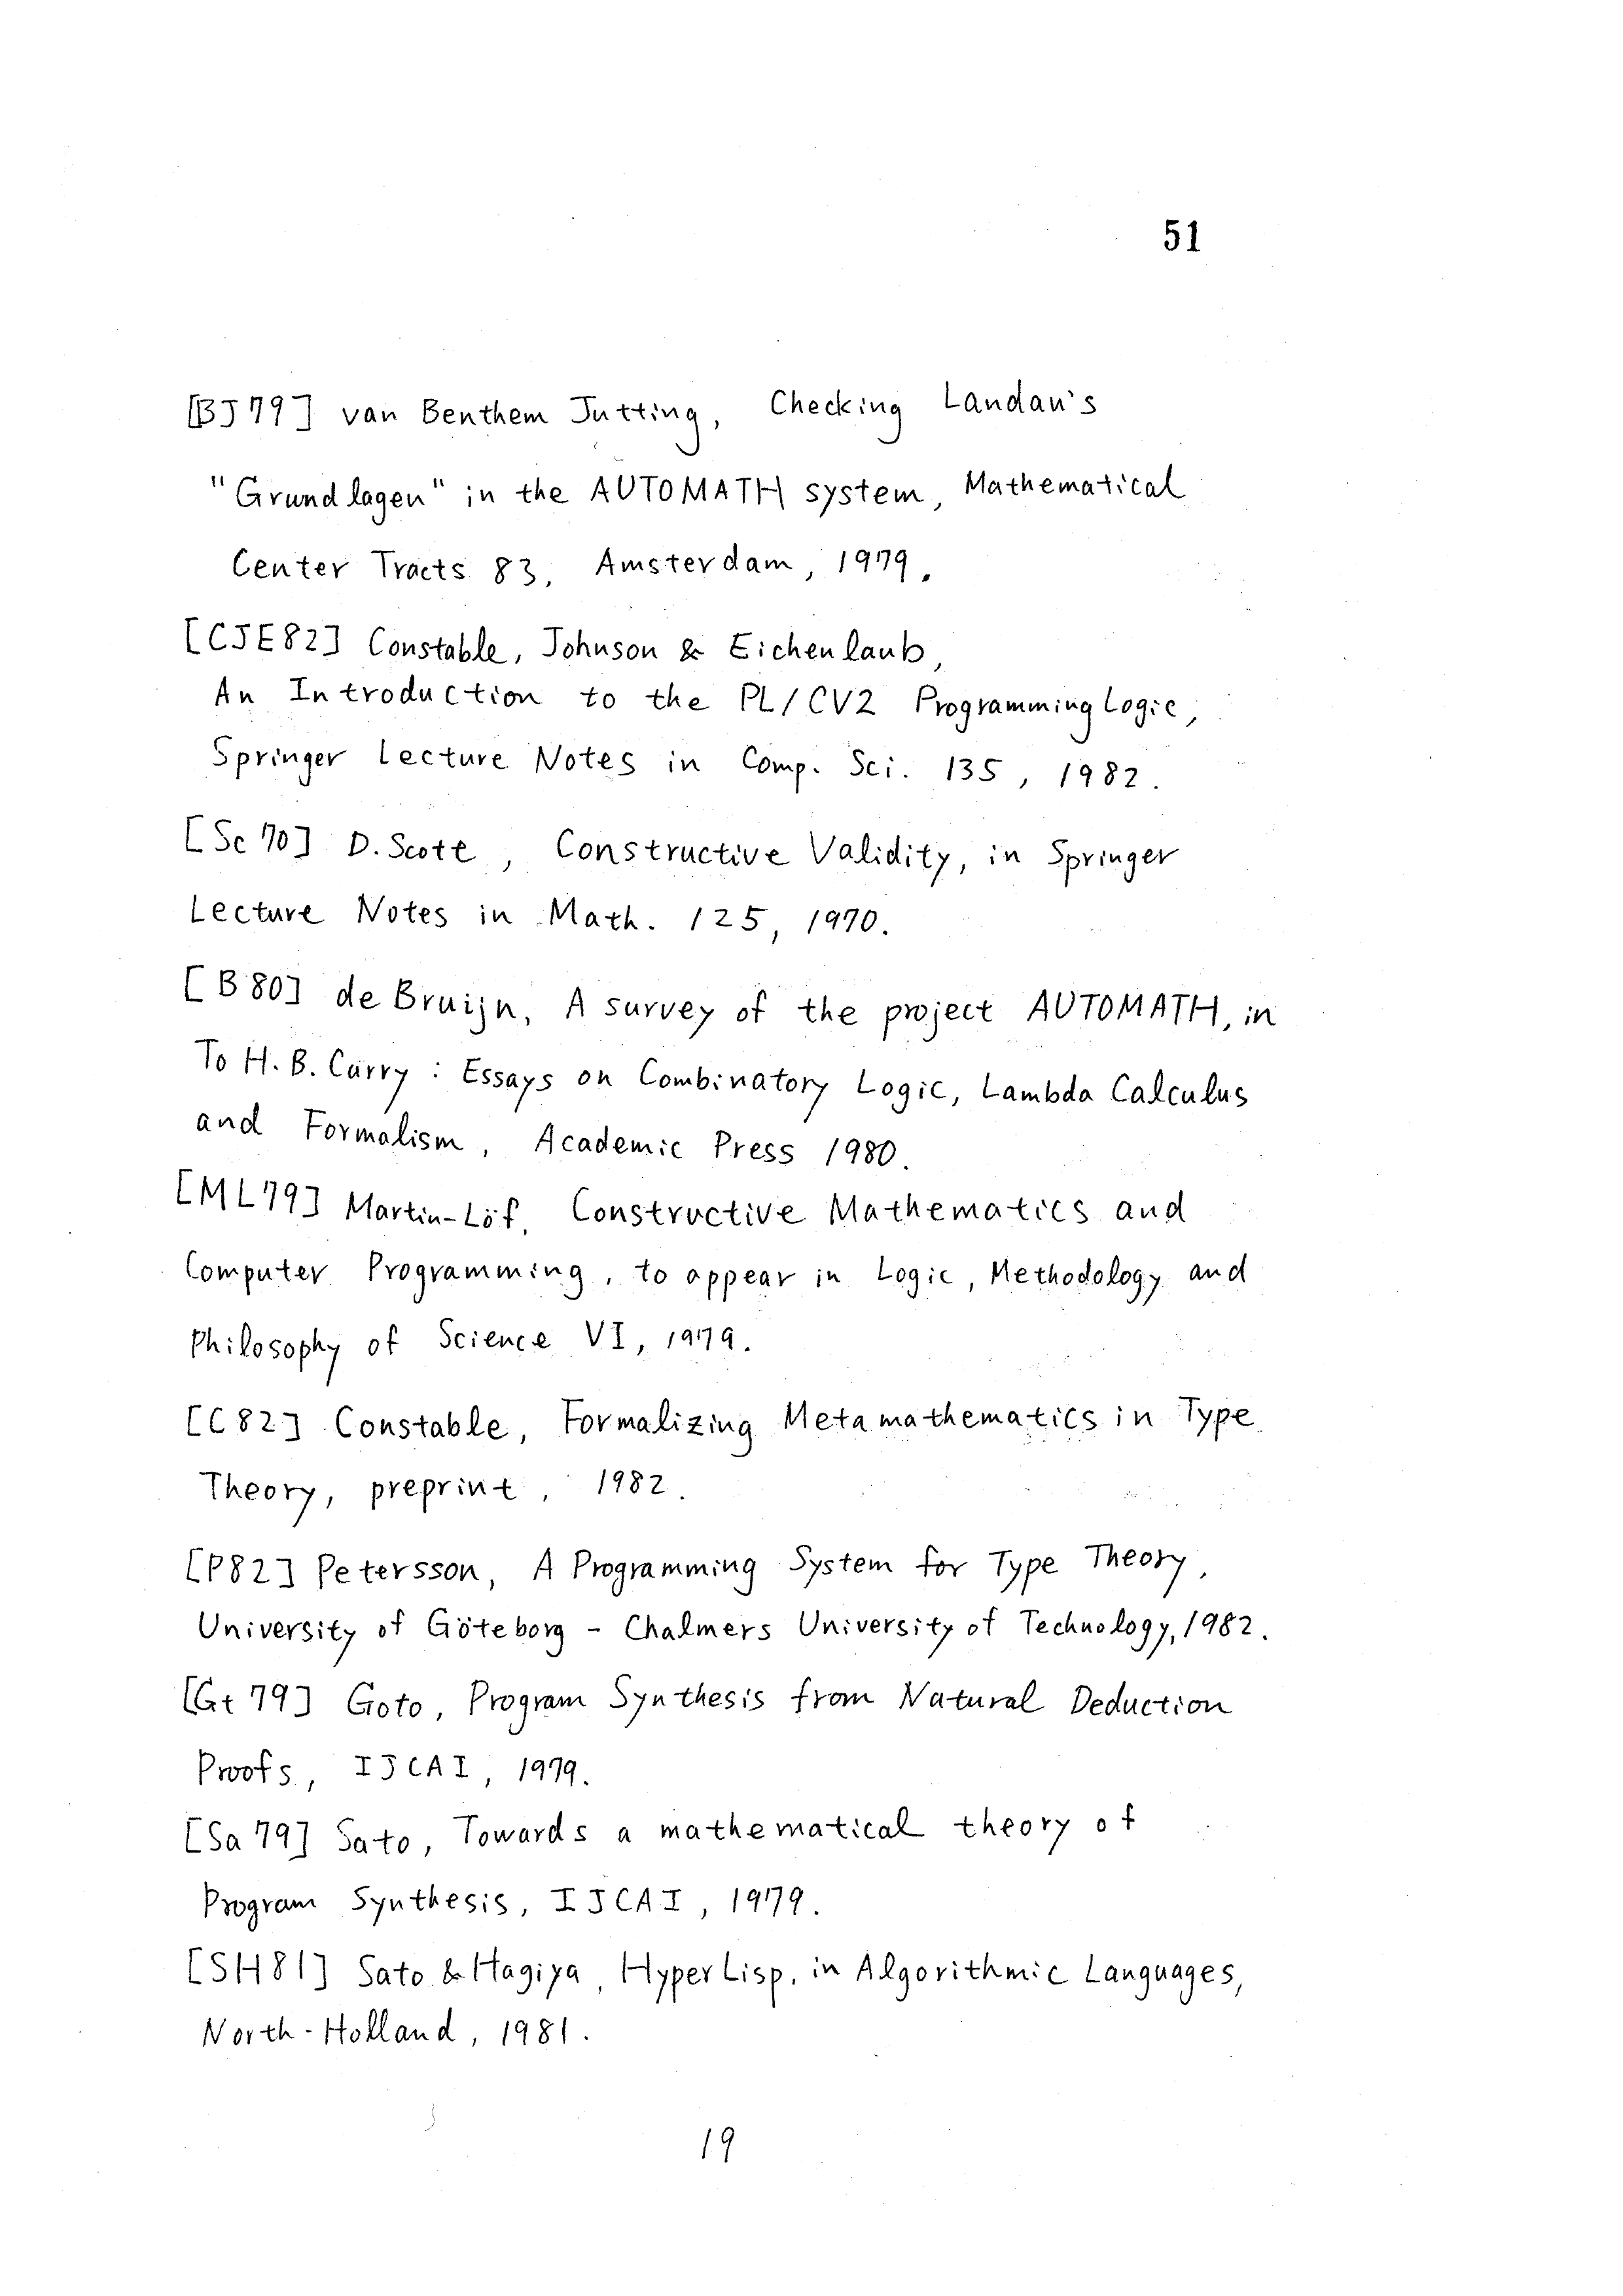 51
[BJ79] van Benthem Jutting, Checking Landau's
"Grundlagen" in the AUTOMATH system, Mathematical
Center Tracts 83, Amsterdam, 1979.
[CJE82] Constable, Johnson & Eichenlaub,
An Introduction to the PL/CV2 Programming Logic,
Springer Lecture Notes in Comp. Sci. 135, 1982.
[Sc70] D. Scott, Constructive Validity, in Springer
Lecture Notes in Math. 125, 1970.
[B80] de Bruijn, A survey of the project AUTOMATH, in
To H. B. Curry : Essays on Combinatory Logic, Lambda Calculus
and Formalism, Academic Press 1980.
[ML79] Martin-Löf, Constructive Mathematics and
Computer Programming, to appear in Logic, Methodology and
Philosophy of Science VI, 1979.
[C82] Constable, Formalizing Metamathematics in Type
Theory, preprint, 1982.
[P82] Petersson, A Programming System for Type Theory,
University of Göteborg - Chalmers University of Technology, 1982.
[Gt79] Goto, Program Synthesis from Natural Deduction
Proofs, IJCAI, 1979.
[Sa79] Sato, Towards a mathematical theory of
Program Synthesis, IJCAI, 1979.
[SH81] Sato & Hagiya, HyperLisp, in Algorithmic Languages,
North-Holland, 1981.
19